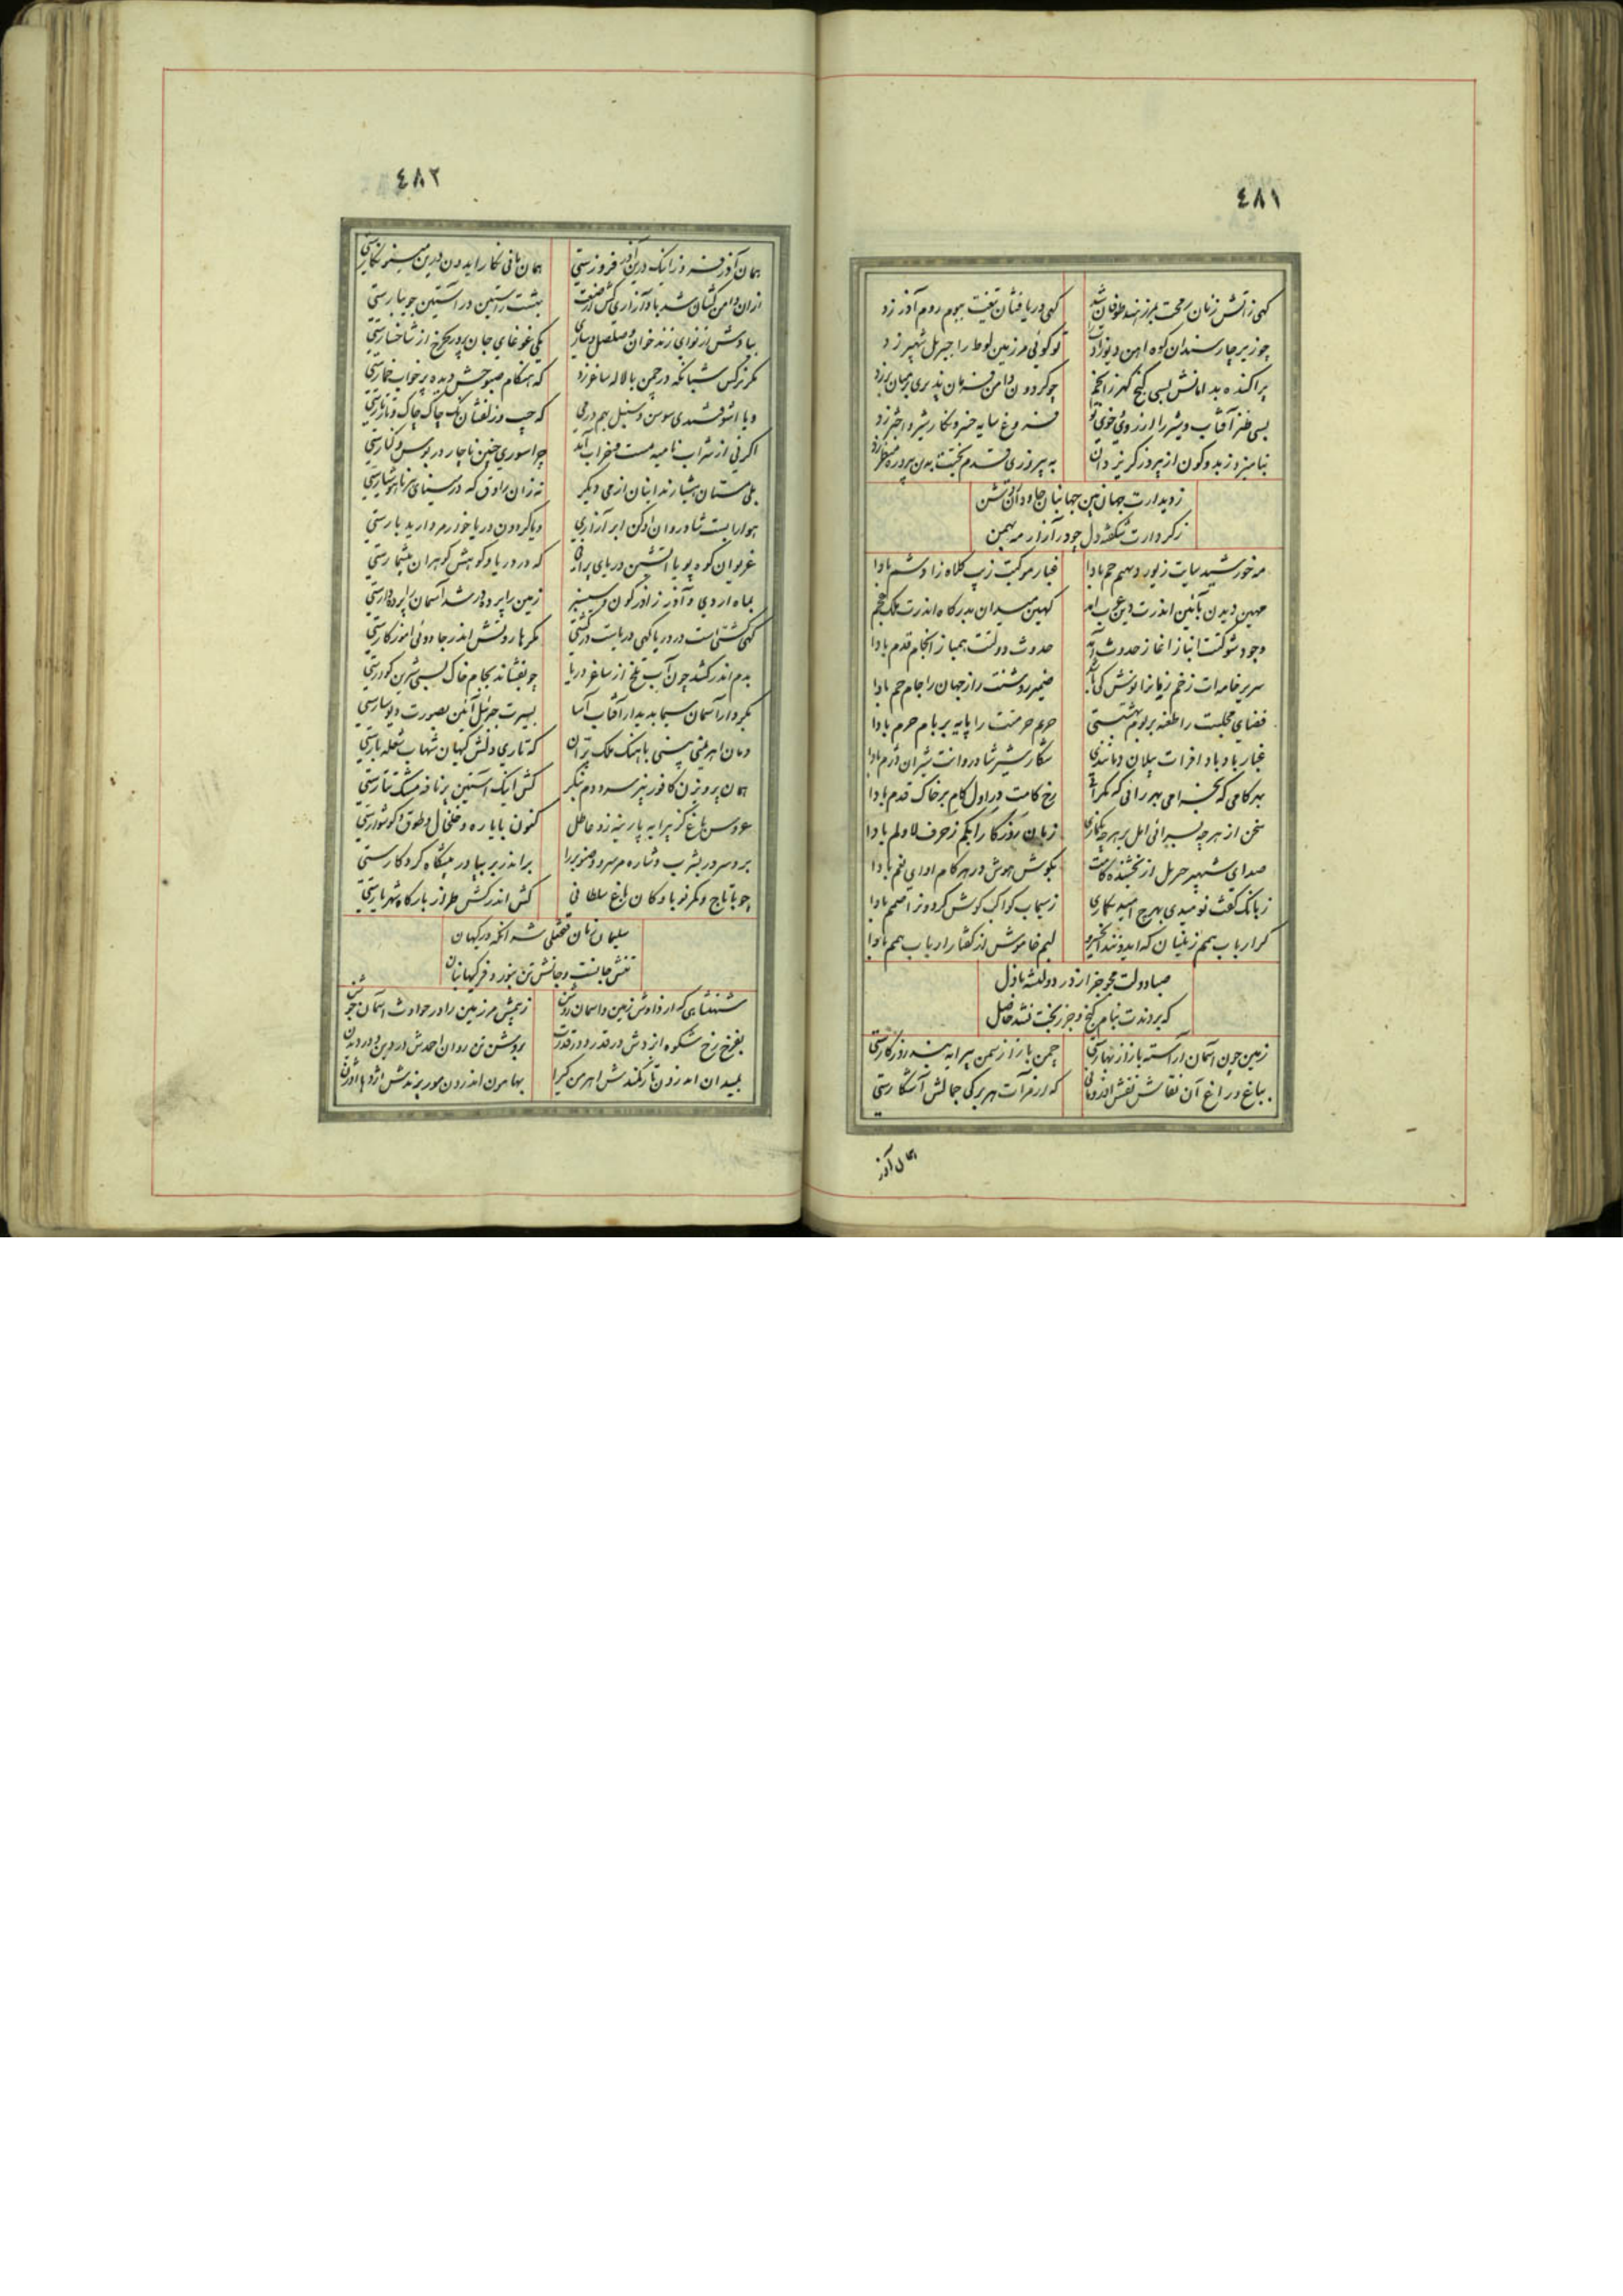 ٤٨١
کهی زاتش زنان رمحت بمرز هند طوفان شد کهی دریا فشان تیغت ببوم روم آذر زد
چو زیر چار سندان کوه اهن دیوزادت را تو کوئی مرزمین لوط را جبریل شهپر زد
پراکنده بدامانش بسی کنج کهر زانجم چو کردون دامن فرمان پذیری بر میان برزد
بسی طنز آفتاب و شیر را از روی و خوی تو فروغ سایه خسرو نکار شیر و اختر زد
به پیروزی قدم بختت بدین پیروزه منظر زد
زدیدارت جهان بین جهانبان جاودان روشن
زکردارت شکفته دل چو در آزار مه بهمن
مه خورشید سایت زیور دیهیم جم بادا غبار موکبت زیب کلاه زادشم بادا
مهین دیدن بآئین اندرت دین عرب آمد کهین میدان بدرکاه اندرت ملک عجم
وجود شوکتت انباز اغاز حدوث آمد حدوث دولتت همباز انجام قدم بادا
سریر خامه‌ات زخم زمانرا نوش کی باشد ضمیر روشنت راز جهان را جام جم بادا
فضای مجلست را طعنه بر بوم بهشتستی حریم حرمتت را پایه بر بام حرم بادا
غبار باد پا افرات پیلان دمانندی شکار شیر شادروانت شیران دژم بادا
بهر کامی که بخرامی بهر رانی که بکرائی رخ کامت در اول کام بر خاک قدم بادا
سخن از هر چه بسرائی امل بر هر چه بکماری زبان روزکار ابکم زحرف لا و لم بادا
صدای شهپر جبریل از بخشنده کانت بکوش هوش در هر کام اوای نعم بادا
زبانک کفت نومیدی بهرج امیدنکاری زسیماب کواکب کوش کردونرا صمم بادا
کر ارباب همم زینسان که ایدونند ای خسرو لبم خاموش از کفتار ارباب همم بادا
صبا دولت مجو جز از در دولتشه باذل
که بردندت بنام کنج و جز رنجت نشد حاصل
زمین چون آسمان آراسته باز از بهارستی چمن باز از سمن پیرایه بند روزکارستی
بباغ و راغ آن نقاش نقش اندر که از مرآت هر برکی جمالش آشکارستی
همان آذر
٤٨٢
همان آذر فروز اینک درین آذر فروزستی همان مانی نکار ایدون درین مینو نکارستی
ازان دامن کشان شد باد آزاری کش از صنعت بهشت راستین در آستین جویبارستی
بیادش از نوای زندخوان و صلصل و ساری یکی غوغای جان پرور بهر شاخ از شاخسارستی
مکر نرکس شبانکه در چمن با لاله ساغر زد که هنکام صبوحش دیده پر خواب خمارستی
و یا آشوفتندی سوسن و سنبل بهم در می که جیب و زلفشان نک چاک چاک و تارتارستی
اکر نی از شراب نامیه مست و خراب آمد چرا سوری چنین ناچار در بوس و کنارستی
بلی مستان هشیارند اینان از می دیکر نه زان راوق که در مینای هر ناهوشیارستی
هوا را بست شادروان ادکن ابر آزاری و یا کردون دریا خور مروارید بارستی
غریوان کوه پویا آتشین دریای پران که در دریا و کوهش کوهران بیشمارستی
بماه اردی و آذر ز آذرکون و سیسنبر زمین را پرده در شد آسمان را پرده‌دارستی
کهی کشتی است در دریا کهی دریاست در کشتی مکر هاروتش اندر جادوئی آموزکارستی
بدم اندر کشد چون آب تلخ از ساغر دریا چو بفشاند بجام خاک بس شیرین کوارستی
بکردار آسمان سیما بدیدار آفتاب آسا بسیرت جبرئیل آئین بصورت دیوسارستی
دمان اهرمنی بینی باهنک ملک پران که تاری دلش کیهان شهاب شعله بارستی
همان پرویزن کافور بیز سرد دم بنکر کش اینک آستین پر نافه مشک تتارستی
عروس باغ کز پیرایه پارینه زد عاطل کنون با یاره و خلخال و طوق و کوشوارستی
بر و سر در بشرب و شاره مر سرو و صنوبر را براندر پرنیا در پیشکاه کردکارستی
چو با تاج و کمر نوباوکان باغ سلطانی کش اندر کش طراز بارکاه شهریارستی
سلیمان زمان فتحعلی شه انکه در کیهان
تنش جانست و جانش تن بنور و فر کیهانبان
شهنشاهی که از دادش زمین و اسمان روشن زجیشش مر زمین را در حوادث اسمان جوشن
بفرخ رخ شکوه ایزدش در قدر و در قدرت بروشن تن روان احمدش در دین و در دیدن
بمیدان اندرون تازی کمندش اهرمن کیرا بهامون اندرون مور پرندش اژدها اوژن